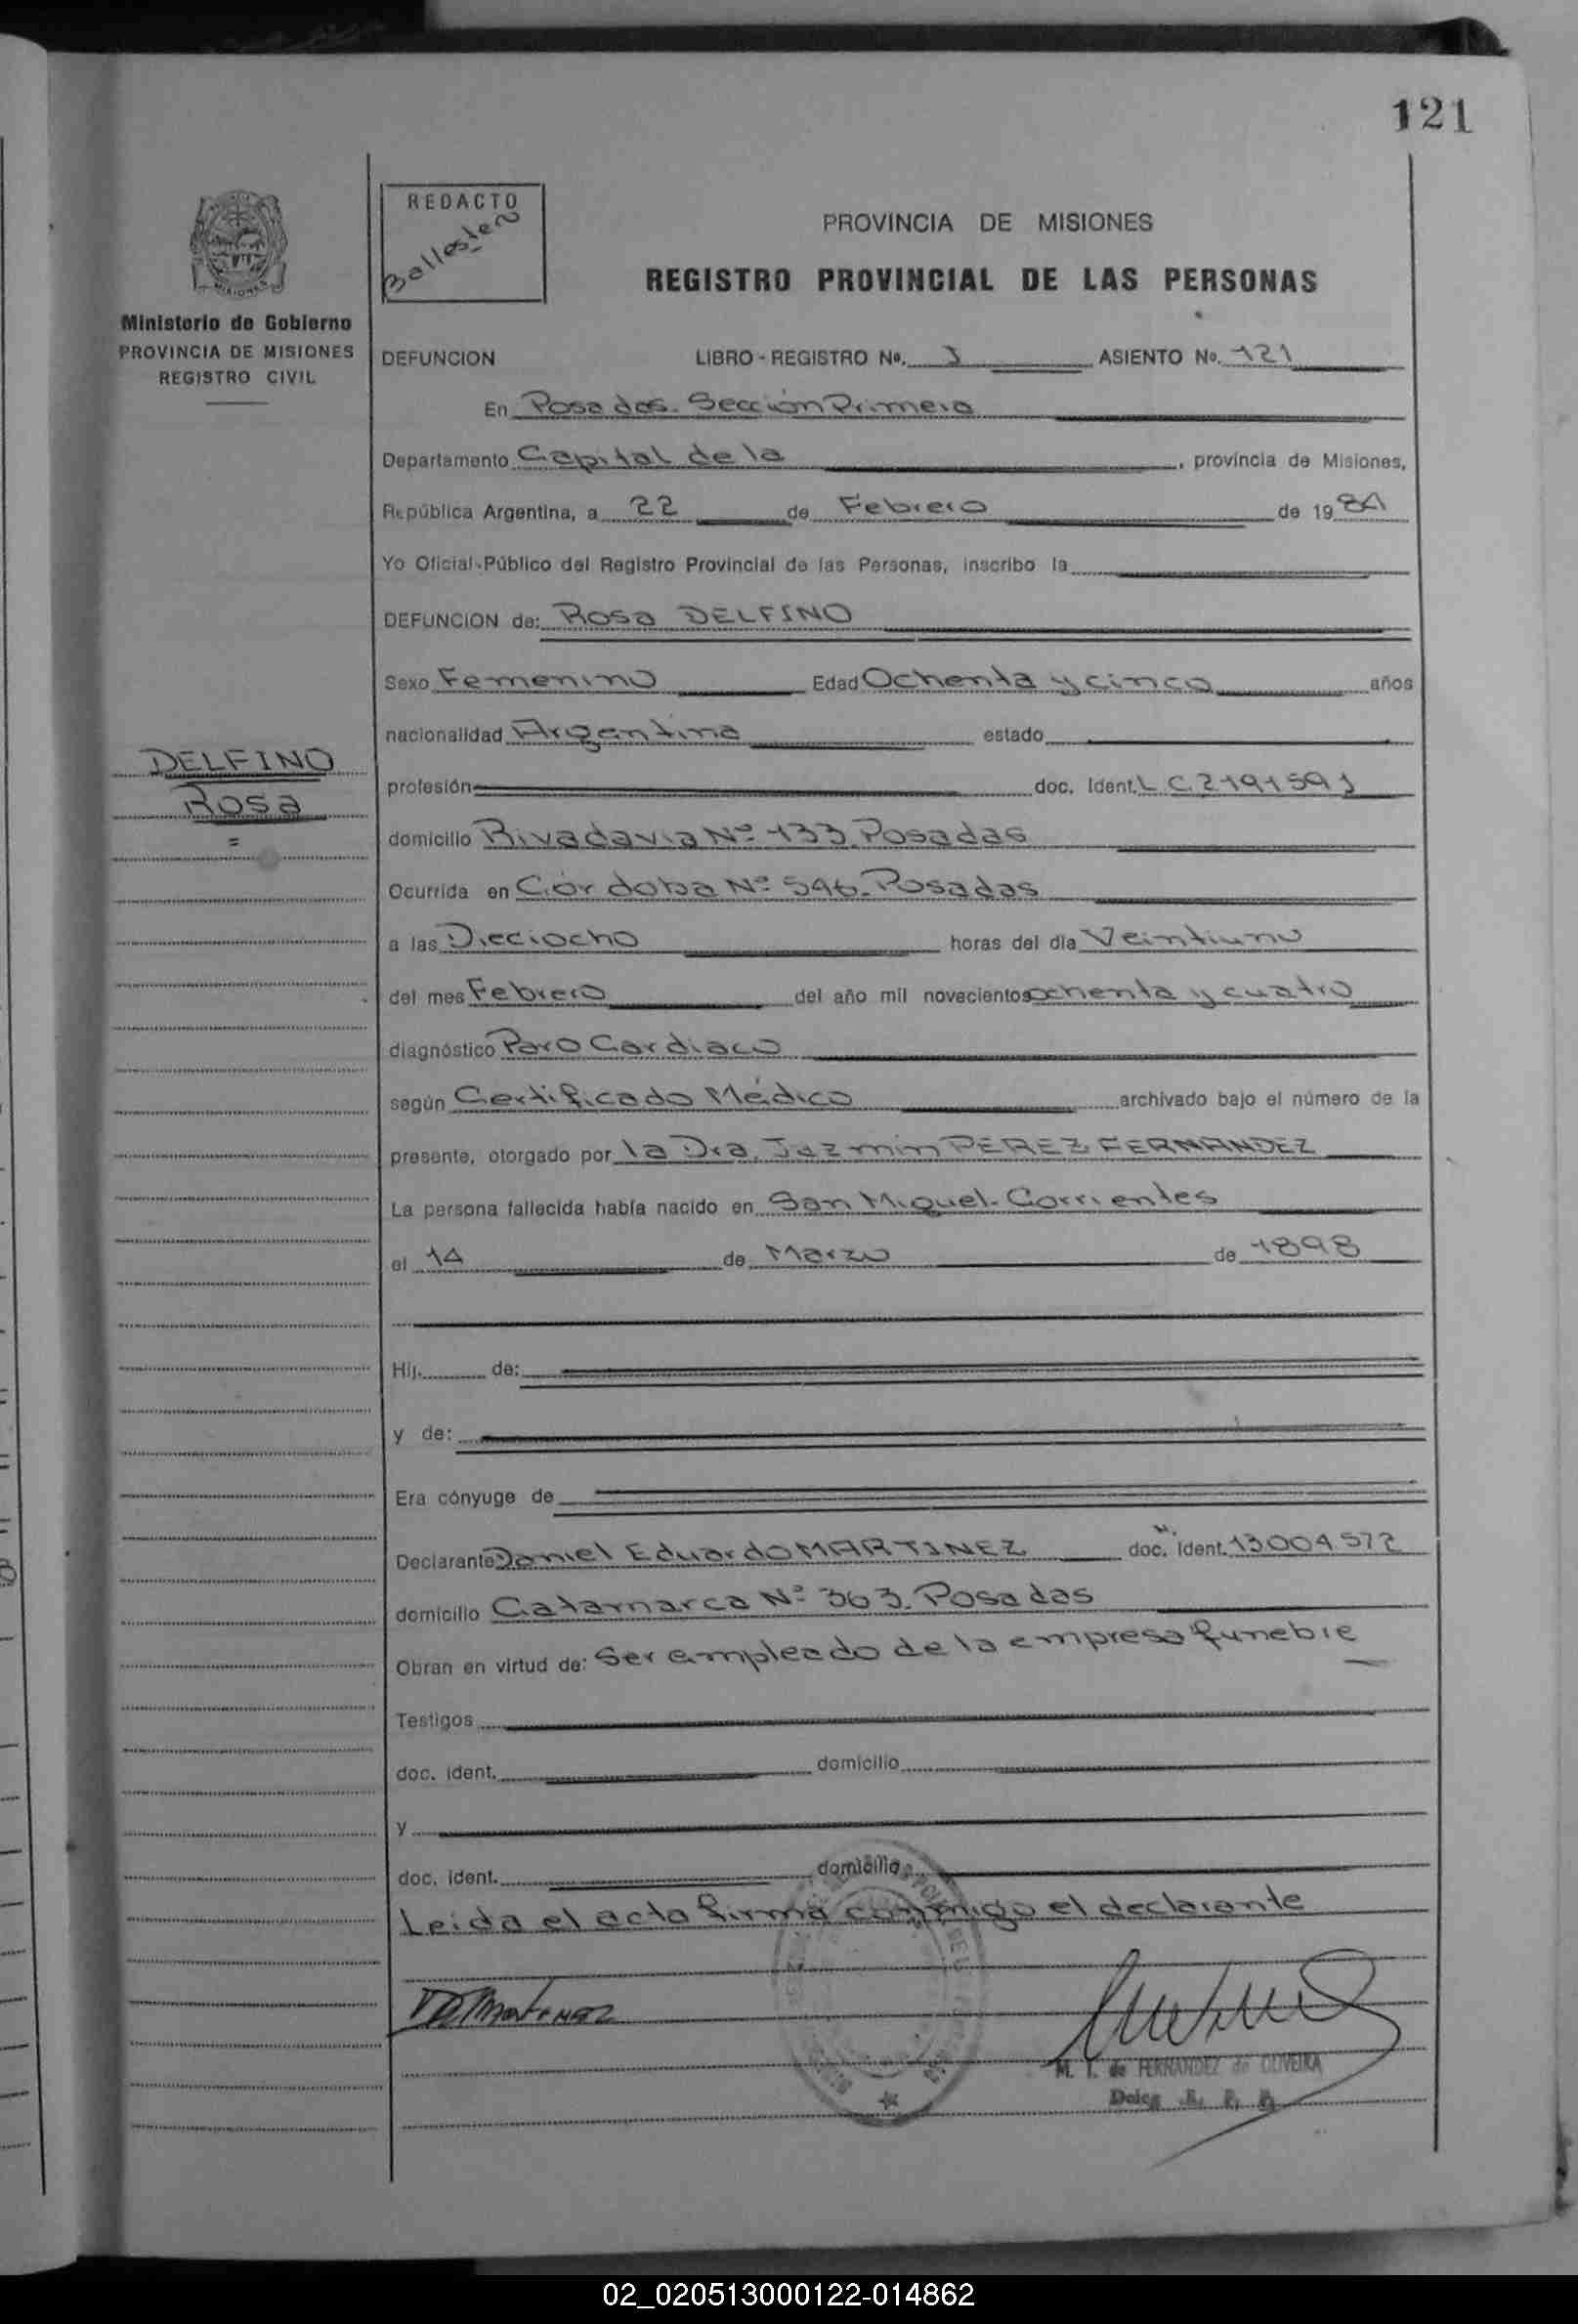 121
REDACTO
Ballester
PROVINCIA DE MISIONES
REGISTRO PROVINCIAL DE LAS PERSONAS
Ministerio de Gobierno
PROVINCIA DE MISIONES
REGISTRO CIVIL
DEFUNCION LIBRO - REGISTRO No. I ASIENTO No. 121
En Posadas. Sección Primera
Departamento Capital de la , provincia de Misiones,
República Argentina, a 22 de Febrero de 1984
Yo Oficial Público del Registro Provincial de las Personas, inscribo la
DEFUNCION de: Rosa DELFINO
Sexo Femenino Edad Ochenta y cinco años
nacionalidad Argentina estado
DELFINO
Rosa
=
profesión doc. Ident. L.C. 2191591
domicilio Rivadavia Nº 133. Posadas
Ocurrida en Córdoba Nº 546. Posadas
a las Dieciocho horas del día Veintiuno
del mes Febrero del año mil novecientos ochenta y cuatro
diagnóstico Paro Cardiaco
según Certificado Médico archivado bajo el número de la
presente, otorgado por la Dra. Jazmin PEREZ FERNANDEZ
La persona fallecida había nacido en San Miguel - Corrientes
el 14 de Marzo de 1898
Hij. de:
y de:
Era cónyuge de
Declarante Daniel Eduardo MARTINEZ doc. Ident. 13.004.572
domicilio Catamarca Nº 363. Posadas
Obran en virtud de: Ser empleado de la empresa funebre
Testigos
doc. Ident. domicilio
y
doc. Ident. domicilio
Leida el acta firma conmigo el declarante
M. I. de FERNANDEZ de OLIVEIRA
02_020513000122-014862